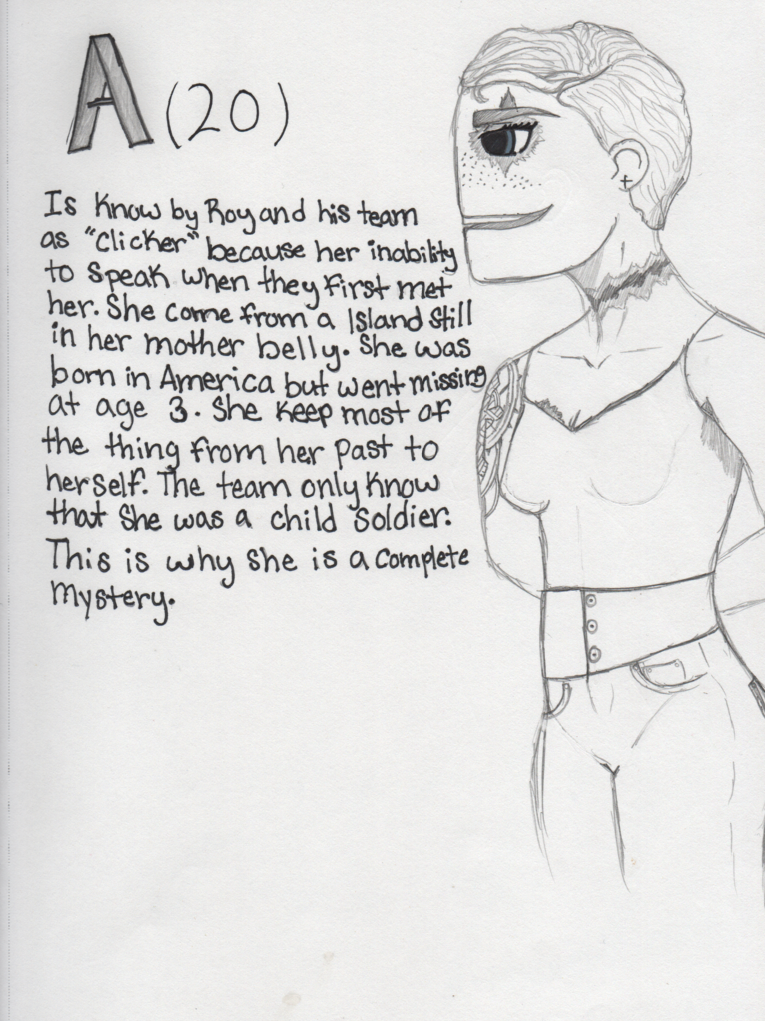 A (20)
Is know by Roy and his team
as "Clicker" because her inability
to speak when they first met
her. She come from a Island still
in her mother belly. She was
born in America but went missing
at age 3. She keep most of
the thing from her past to
herself. The team only know
that she was a child soldier.
This is why she is a complete
mystery.